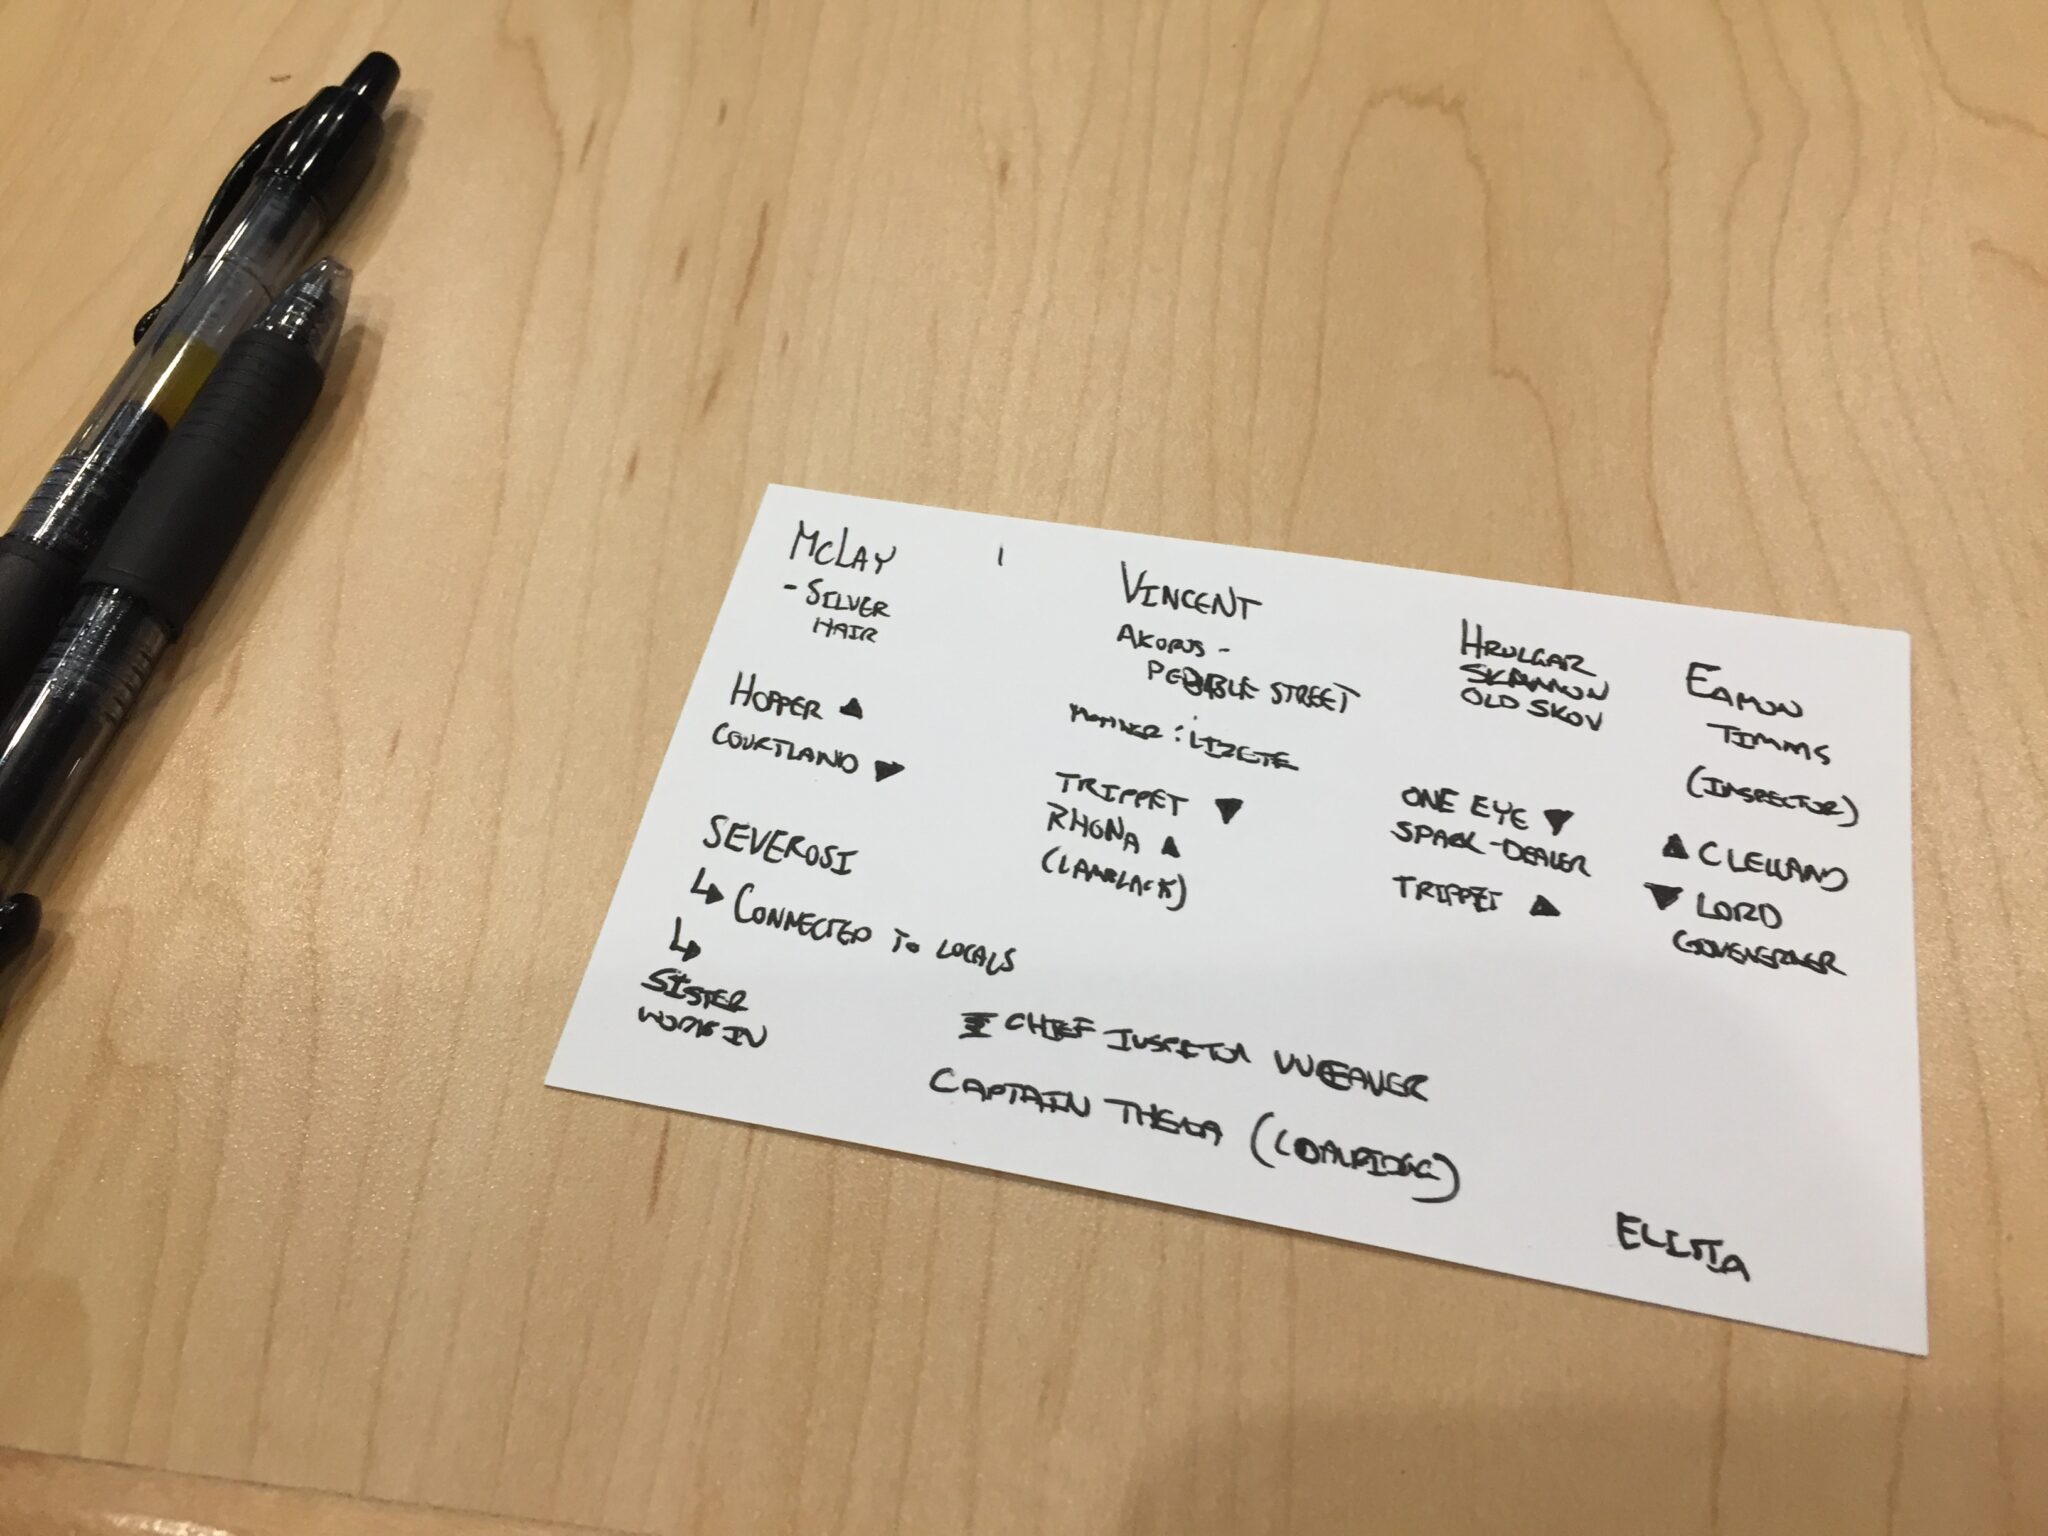 McLAY
- SILVER
HAIR
HOPPER ▲
COURTLAND ▼
SEVEROSI
↳ CONNECTED TO LOCALS
↳
SISTER
WORKS IN
VINCENT
AKORUS -
PEBBLE STREET
MOTHER : LIZETE
TRIPPET ▼
RHONA ▲
(LAMBLACK)
HRULGAR
SKANNON
OLD SKOV
ONE EYE ▼
SPARK-DEALER
TRIPPET ▲
EAMON
TIMMS
(INSPECTOR)
▲ CLELLAND
▼ LORD
GOVENERNER
CHIEF INSPECTOR WEAVER
CAPTAIN (COALRIDGE)